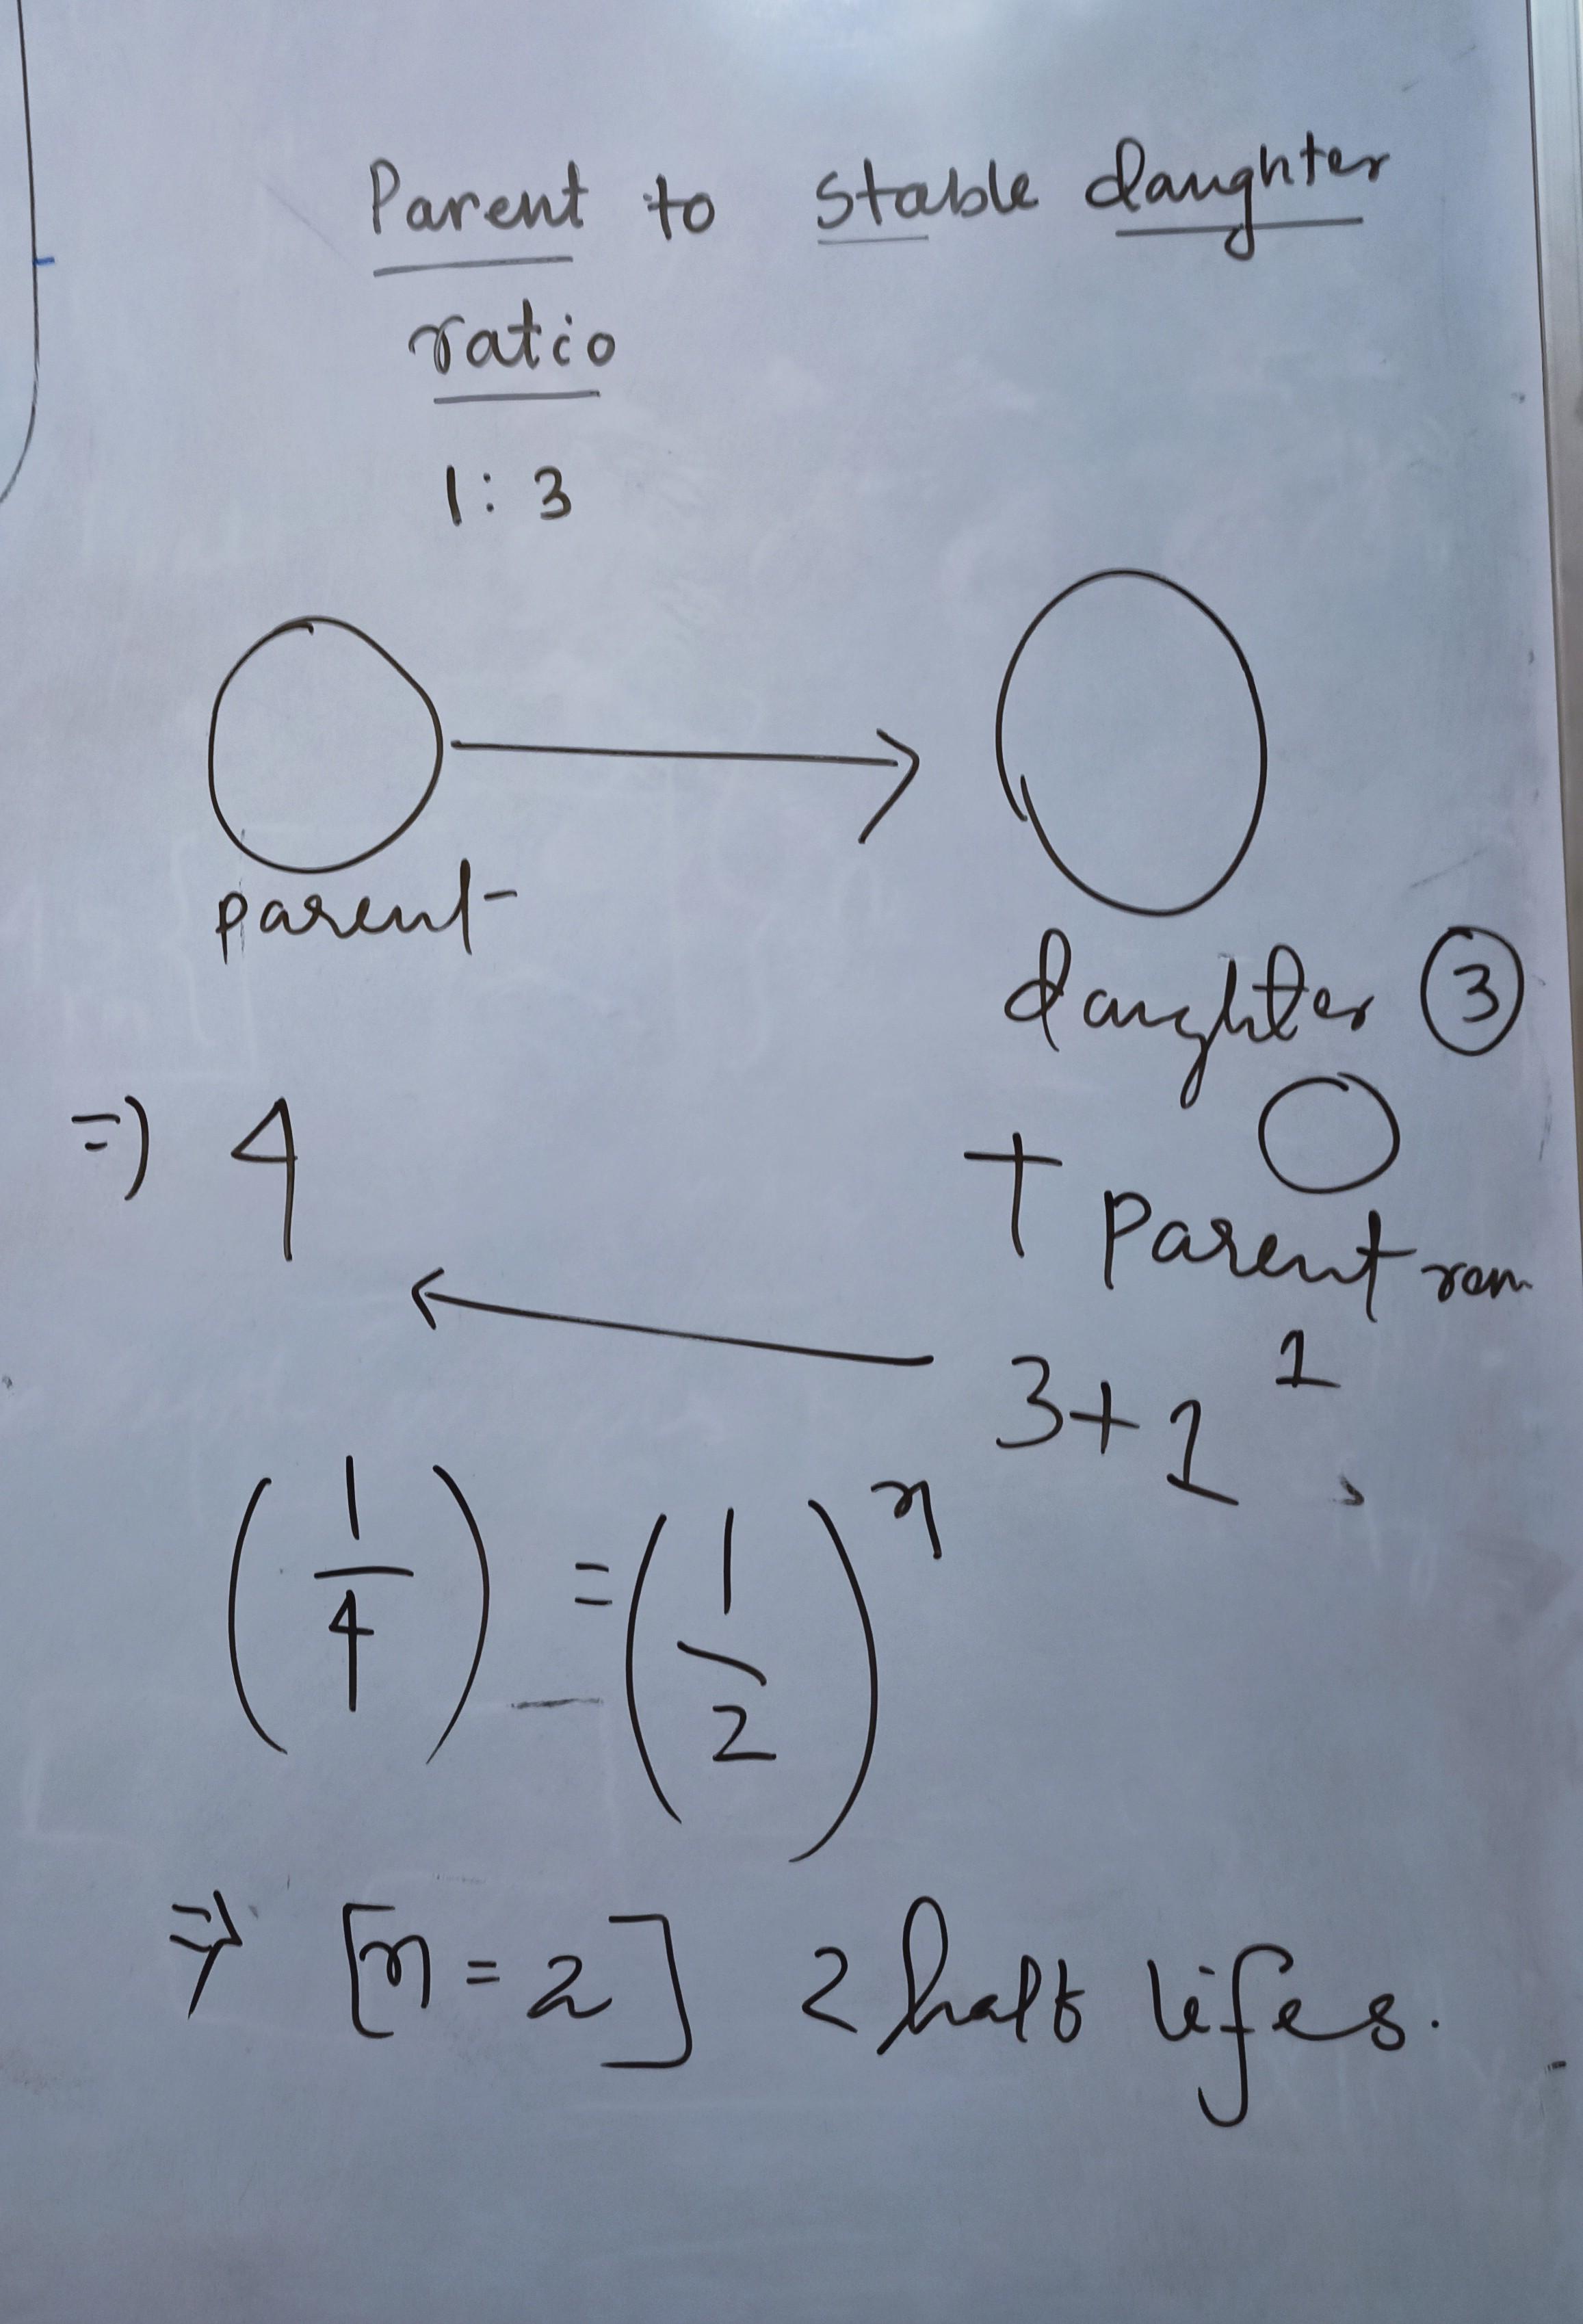 Parent to stable daughter
ratio
1:3
parent
daughter 3
=) 4
+ Parent rem
1
3+1
(1/4) = (1/2)^n
=> [n=2] 2 half lifes.